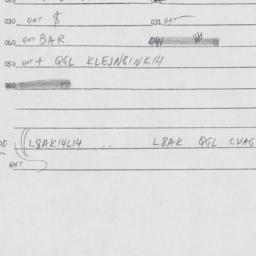 030 GNT $ 032 GNT
040 GNT BAR 041
050 GNT + QGL KLEJNSINK14
L8AK14L14 .. L8AK QGL CVAG
GNT